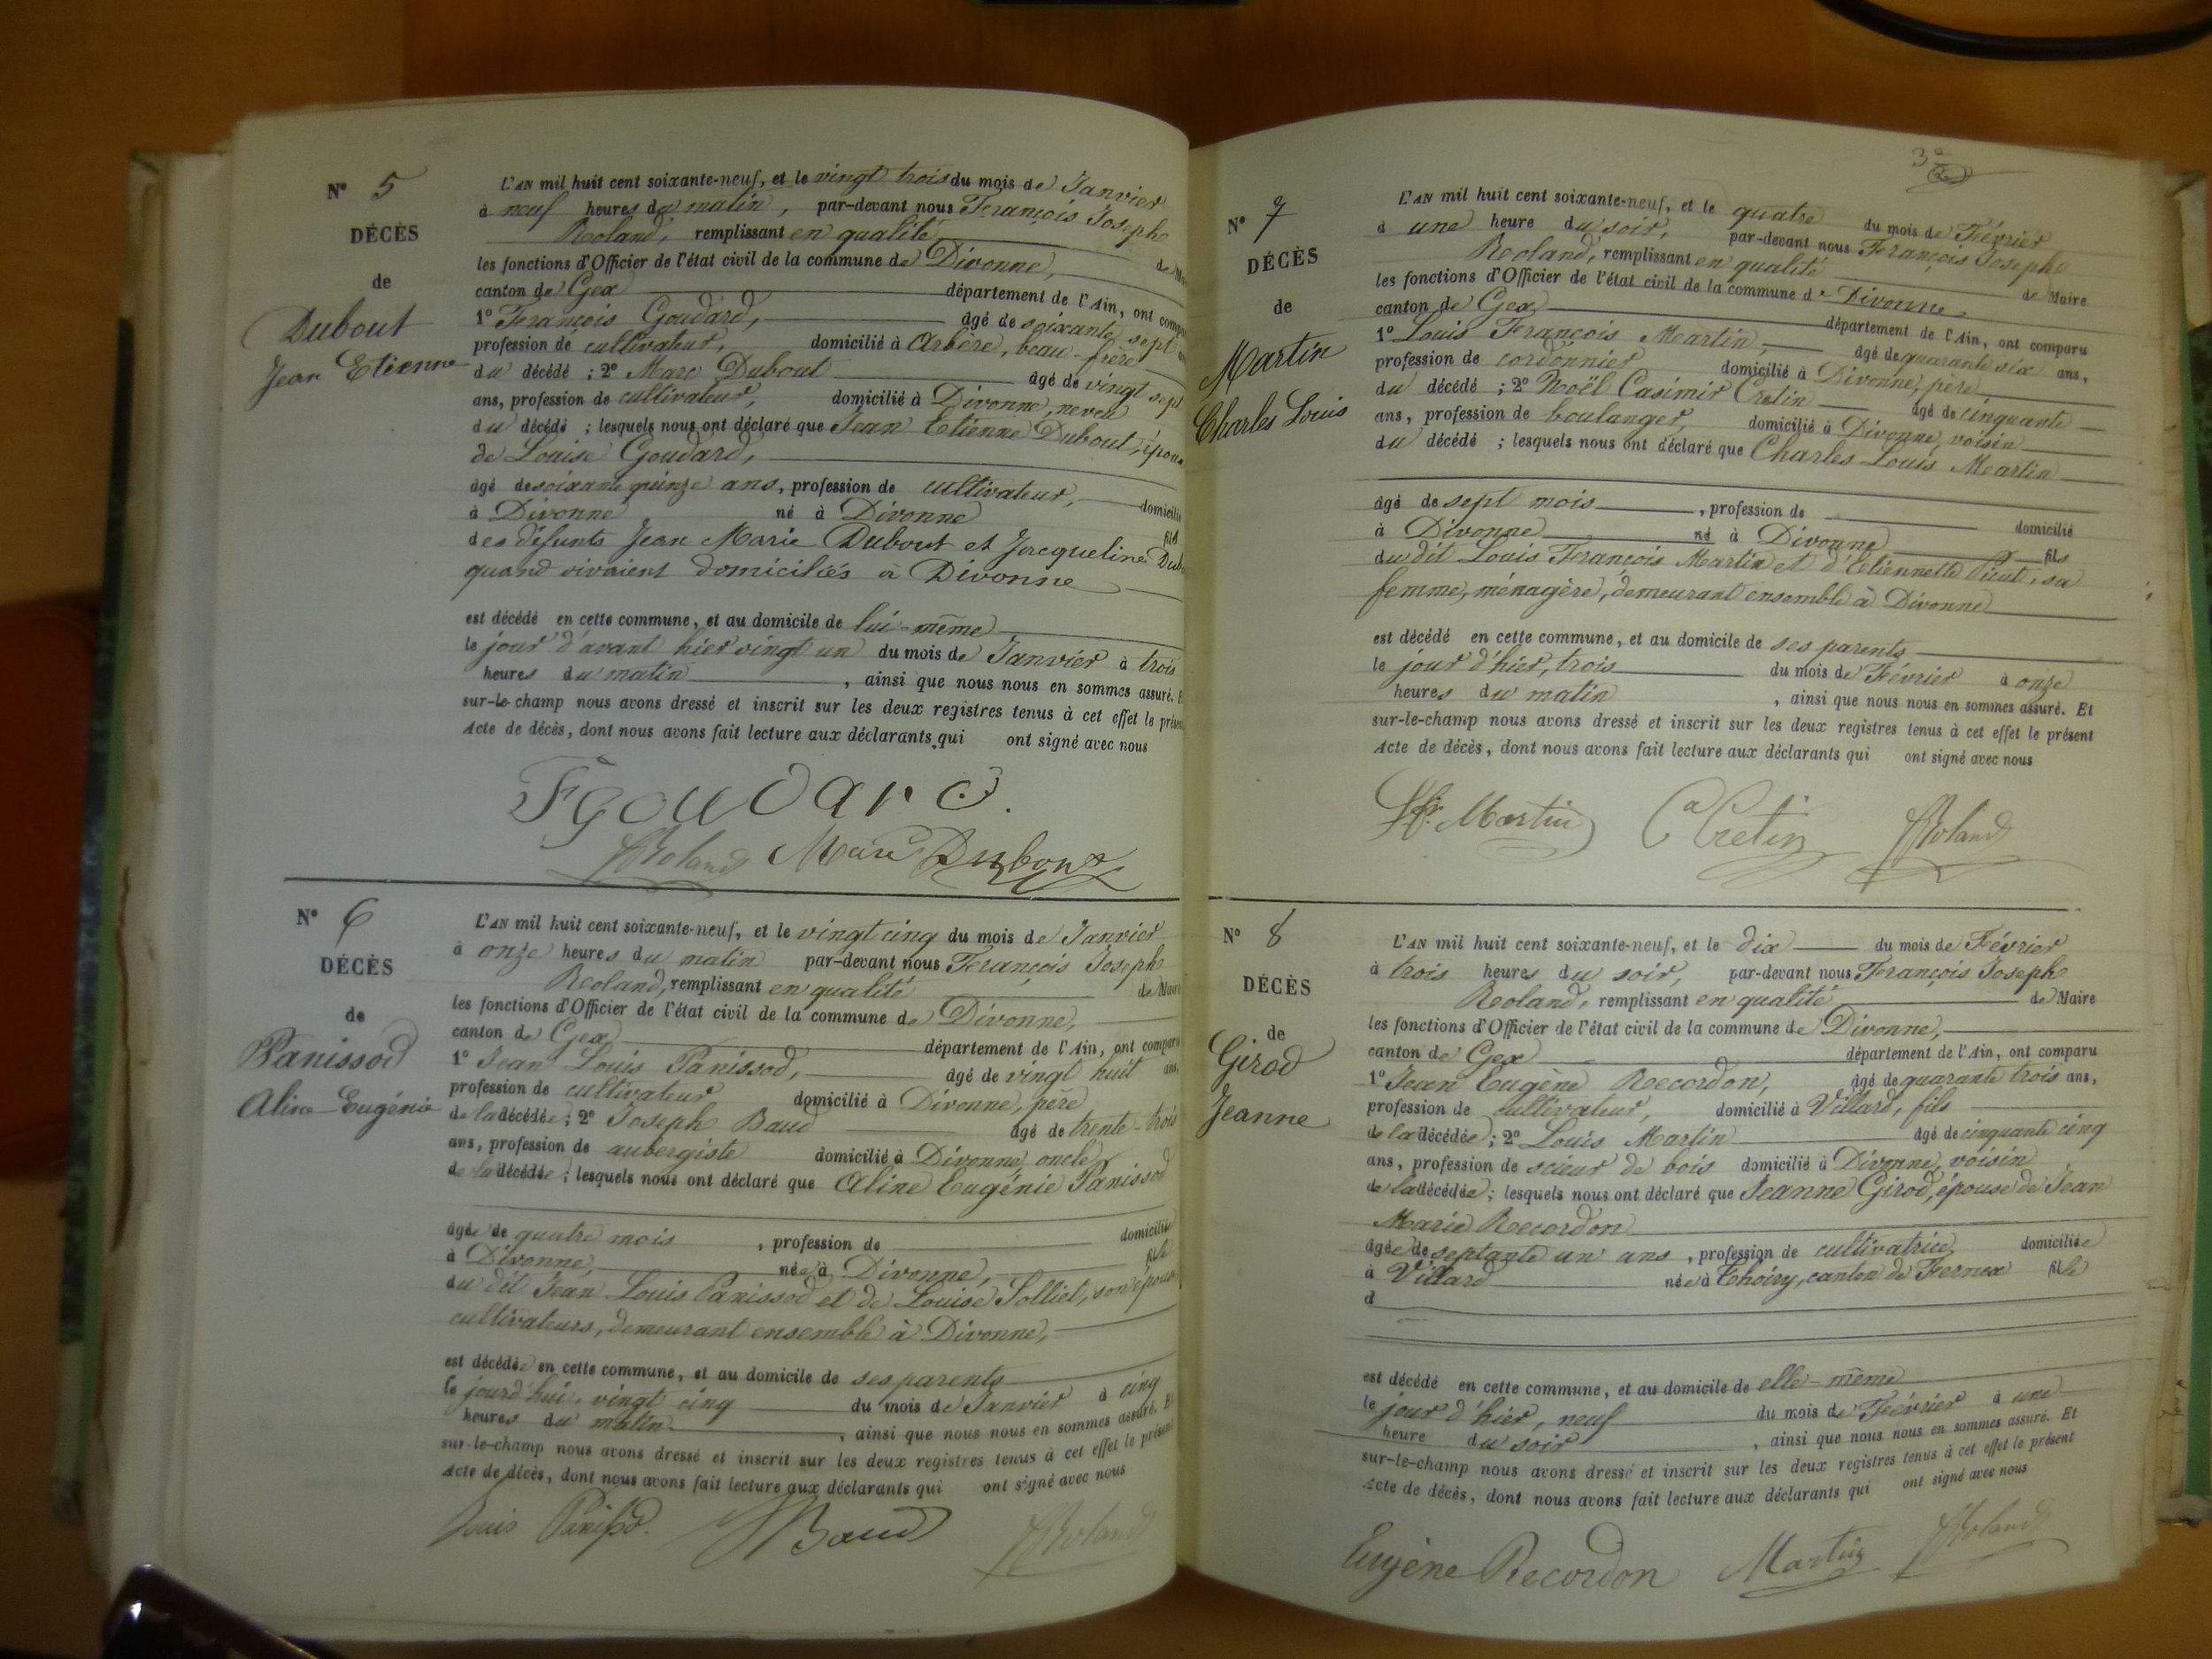 N° 5
DÉCÈS
de
Dubout
Jean Etienne
L'AN mil huit cent soixante-neuf, et le vingt trois du mois de Janvier
à neuf heures du matin, par-devant nous François Joseph
Roland, remplissant en qualité de
les fonctions d'Officier de l'état civil de la commune de Divonne,
canton de Gex département de l'Ain, ont
1° François Goudard, âgé de soixante sept
profession de cultivateur, domicilié à Arbère, beau-frère
du décédé ; 2° Marc Dubout âgé de vingt sept
ans, profession de cultivateur, domicilié à Divonne, neveu
du décédé ; lesquels nous ont déclaré que Jean Etienne Dubout, époux
de Louise Goudard,
âgé de soixante quinze ans, profession de cultivateur, domicilié
à Divonne né à Divonne fils
des défunts Jean Marie Dubout et Jacqueline
quand vivaient domiciliés à Divonne
est décédé en cette commune, et au domicile de lui-même
le jour d'avant hier vingt un du mois de Janvier à trois
heures du matin, ainsi que nous nous en sommes assuré. E
sur-le-champ nous avons dressé et inscrit sur les deux registres tenus à cet effet le présen
Acte de décès, dont nous avons fait lecture aux déclarants qui ont signé avec nous
F Goudard.
FJRoland Marc Dubout
N° 6
DÉCÈS
de
Panissod
Aline Eugénie
L'AN mil huit cent soixante-neuf, et le vingt cinq du mois de Janvier
à onze heures du matin par-devant nous François Joseph
Roland, remplissant en qualité de Maire
les fonctions d'Officier de l'état civil de la commune de Divonne,
canton de Gex département de l'Ain, ont comparu
1° Jean Louis Panissod, âgé de vingt huit ans,
profession de cultivateur domicilié à Divonne, père
de la décédée ; 2° Joseph Baud âgé de trente-trois
ans, profession de aubergiste domicilié à Divonne, oncle
de la décédée ; lesquels nous ont déclaré que Aline Eugénie Panissod
âgée de quatre mois, profession de domiciliée
à Divonne, née à Divonne, fille
du dit Jean Louis Panissod et de Louise Solliet, son épouse
cultivateurs, demeurant ensemble à Divonne,
est décédée en cette commune, et au domicile de ses parents
le jourd'hui, vingt cinq du mois de Janvier à cinq
heures du matin, ainsi que nous nous en sommes assuré. Et
sur-le-champ nous avons dressé et inscrit sur les deux registres tenus à cet effet le présent
Acte de décès, dont nous avons fait lecture aux déclarants qui ont signé avec nous
Louis Panissod. JBaud FJRoland
3e
N° 7
DÉCÈS
de
Martin
Charles Louis
L'AN mil huit cent soixante-neuf, et le quatre du mois de Février
à une heure du soir, par-devant nous François Joseph
Roland, remplissant en qualité de Maire
les fonctions d'Officier de l'état civil de la commune de Divonne,
canton de Gex département de l'Ain, ont comparu
1° Louis François Martin, âgé de quarante six ans,
profession de cordonnier domicilié à Divonne, père
du décédé ; 2° Noël Casimir Cretin âgé de cinquante
ans, profession de boulanger, domicilié à Divonne, voisin
du décédé ; lesquels nous ont déclaré que Charles Louis Martin
âgé de sept mois, profession de domicilié
à Divonne né à Divonne fils
du dit Louis François Martin et d'Etiennette Picut, sa
femme, ménagère, demeurant ensemble à Divonne
est décédé en cette commune, et au domicile de ses parents
le jour d'hier, trois du mois de Février à onze
heures du matin, ainsi que nous nous en sommes assuré. Et
sur-le-champ nous avons dressé et inscrit sur les deux registres tenus à cet effet le présent
Acte de décès, dont nous avons fait lecture aux déclarants qui ont signé avec nous
Martin Cretin FJRoland
N° 8
DÉCÈS
de
Girod
Jeanne
L'AN mil huit cent soixante-neuf, et le dix du mois de Février
à trois heures du soir, par-devant nous François Joseph
Roland, remplissant en qualité de Maire
les fonctions d'Officier de l'état civil de la commune de Divonne,
canton de Gex département de l'Ain, ont comparu
1° Jean Eugène Recordon, âgé de quarante trois ans,
profession de cultivateur, domicilié à Villard, fils
de la décédée ; 2° Louis Martin âgé de cinquante cinq
ans, profession de scieur de bois domicilié à Divonne, voisin
de la décédée ; lesquels nous ont déclaré que Jeanne Girod, épouse de Jean
Marie Recordon
âgée de septante un ans, profession de cultivatrice, domiciliée
à Villard née à Thoiry, canton de Fernex fille
d
est décédé en cette commune, et au domicile de elle-même
le jour d'hier, neuf du mois de Février à une
heure du soir, ainsi que nous nous en sommes assuré. Et
sur-le-champ nous avons dressé et inscrit sur les deux registres tenus à cet effet le présent
Acte de décès, dont nous avons fait lecture aux déclarants qui ont signé avec nous
Eugène Recordon Martin FJRoland